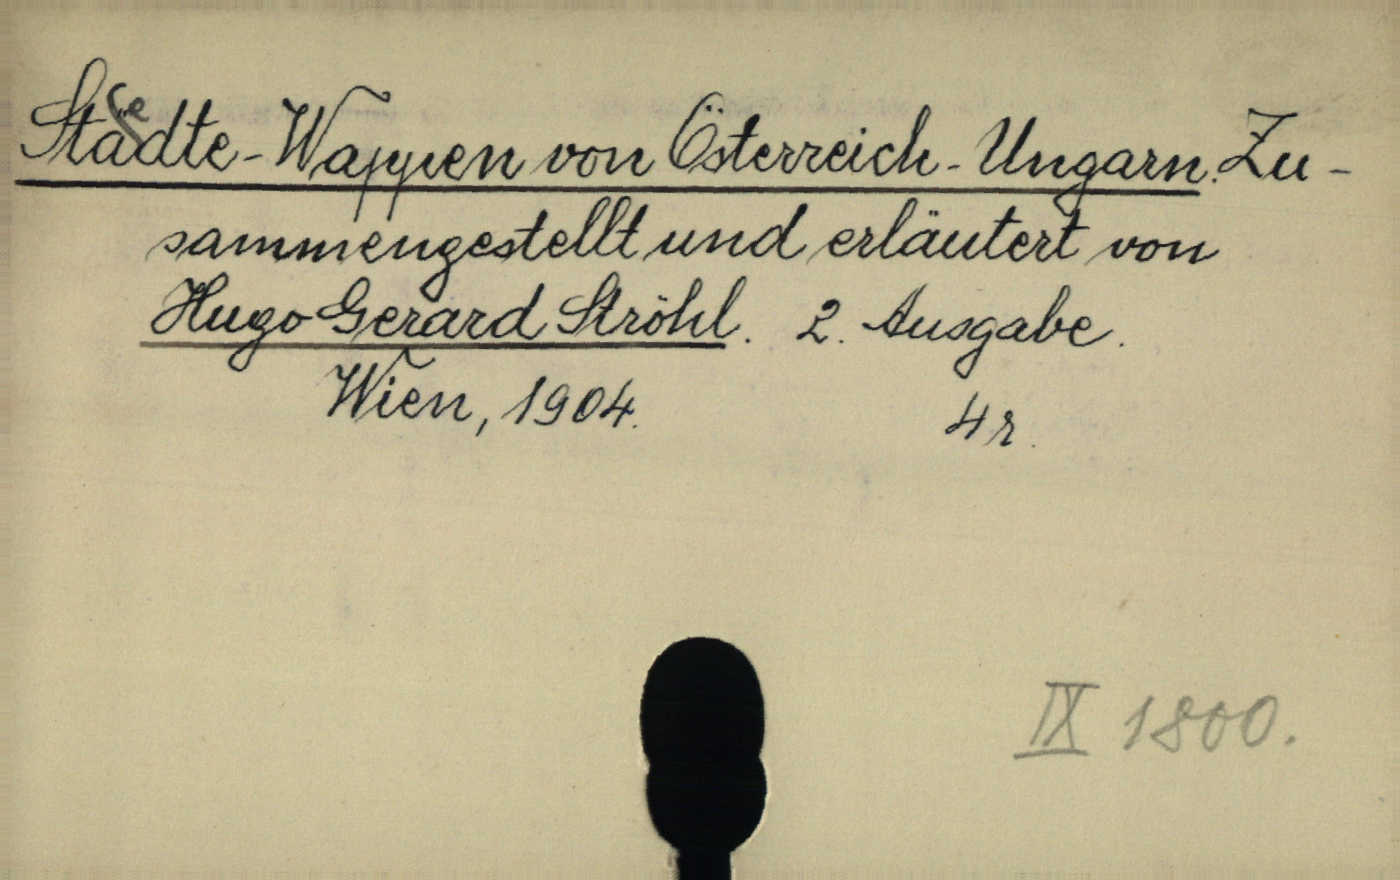 Städte-Wappen von Österreich-Ungarn. Zu-
sammengestellt und erläutert von
Hugo Gerard Ströhl. 2. Ausgabe.
Wien, 1904. 4r.
IX 1800.